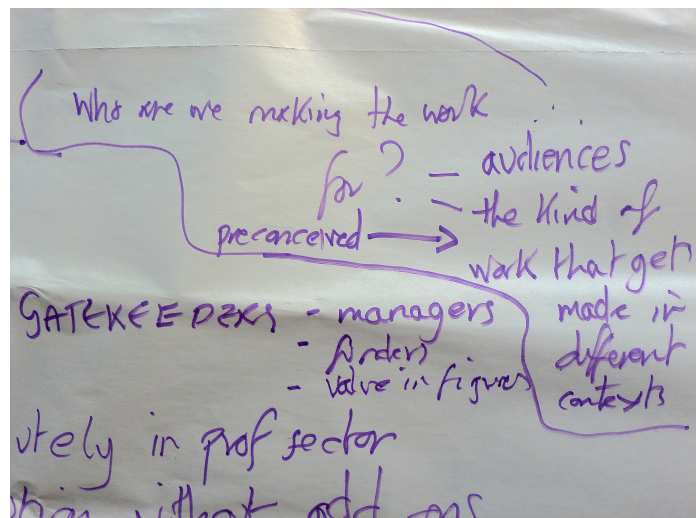 Who are we making the work
for? – audiences
– the kind of
preconceived → work that get
made in
different
contexts
GATEKEEDERS - managers
- funders
- value in figures
utely in prof sector
without add ons